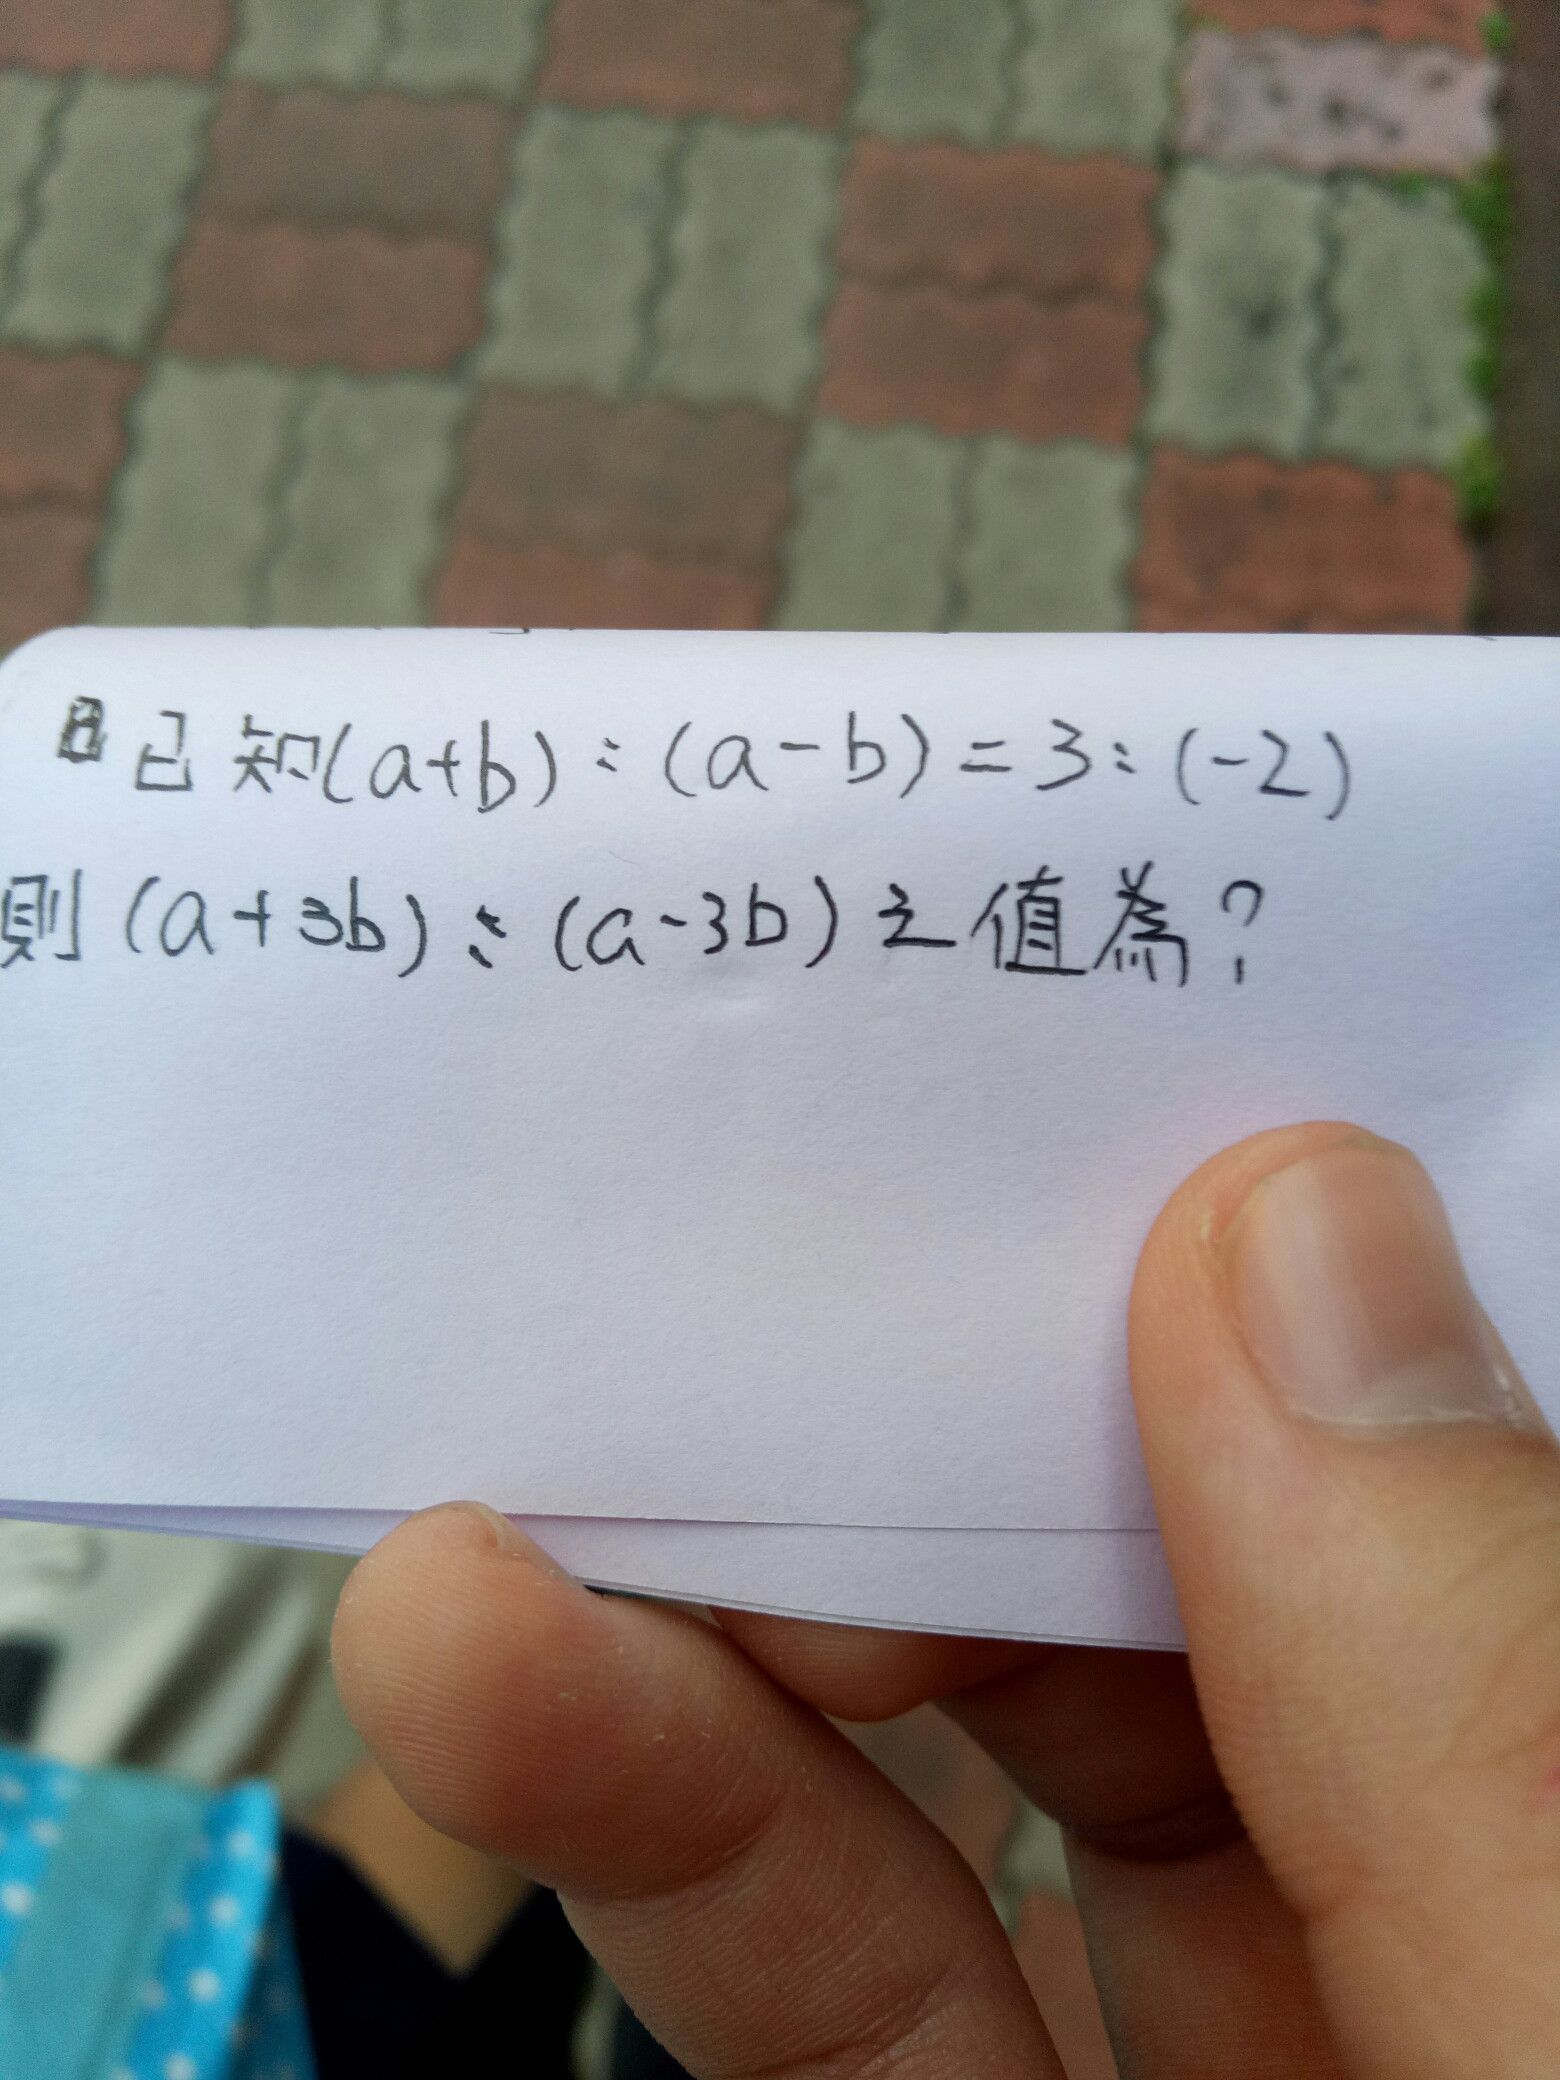 已知(a+b):(a-b)=3:(-2)
則(a+3b):(a-3b)之值為?